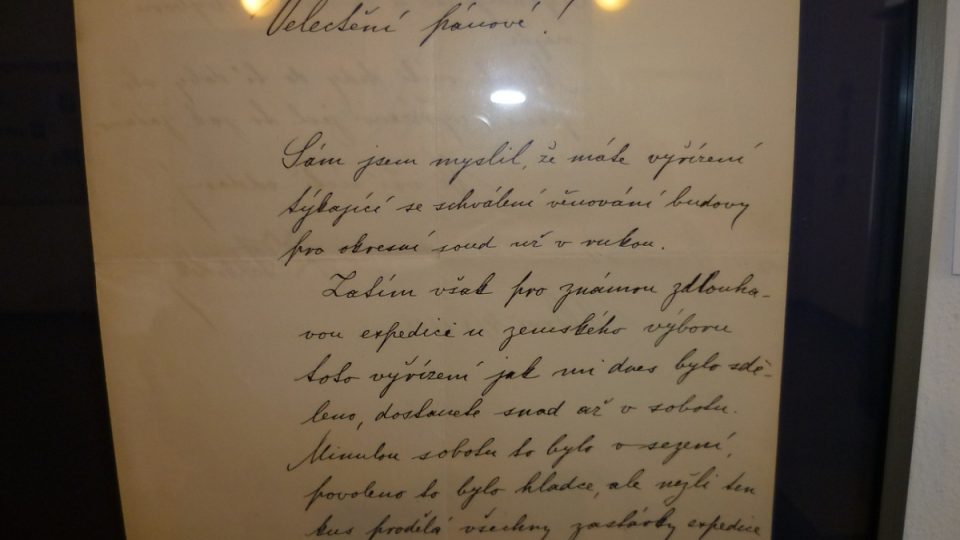 Velectění pánové!
Sám jsem myslil, že máte vyřízení
týkající se schválení věnování budovy
pro okresní soud už v rukou.
Zatím však pro známou zdlouha-
vou expedici u zemského výboru
toto vyřízení jak mi dnes bylo sdě-
leno, dostanete snad až v sobotu.
Minulou sobotu to bylo v sezení,
povoleno to bylo hladce, ale nežli ten
kus prodělá všechny zastávky expedice